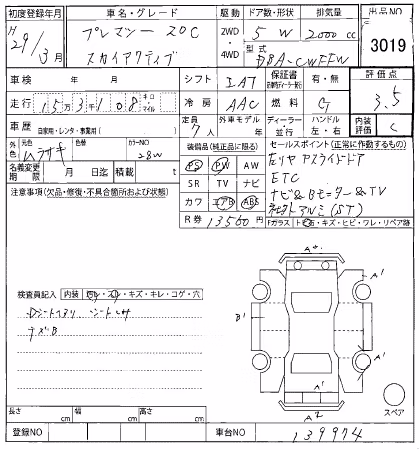 初度登録年月 車名・グレード 駆動 ドア数・形状 排気量 出品NO
H 29/3月 プレマシー 20C 2WD・4WD 5 W 2000 cc 3019
スカイアクティブ 型式 DBA-CWFFW
車検 年 月 シフト IAT 保証書 有・無 評価点
走行 15万3千108 キロ マイル 冷房 AAC 燃料 G 3.5
車歴 自家用・レンタ・事業用( ) 定員 7人 外車モデル 年 ディーラー 並行 ハンドル 左・右 内装評価 C
色 元色 ムラサキ カラーNO 28W 装備品(純正品に限る) セールスポイント(正常に作動するもの)
名義変更期限 月 日迄 積載 t PS PW AW 左リヤ
注意事項(欠品・修復・不具合箇所および改造) SR TV ナビ ETC
カワ エアB ABS ナビ&Bモニター&TV
R券 13560円 アルミ(ST)
Fガラス トビ石・キズ・ヒビ・ワレ・リペア跡
検査員記入 内装 ヨレ・スレ・キズ・キレ・コゲ・穴
Dシートスリ シート
キズB
A'
A'
A'
B'
A'
A'
A'
A2
スペア
長さ cm 幅 cm 高さ cm
登録NO 車台NO 139974